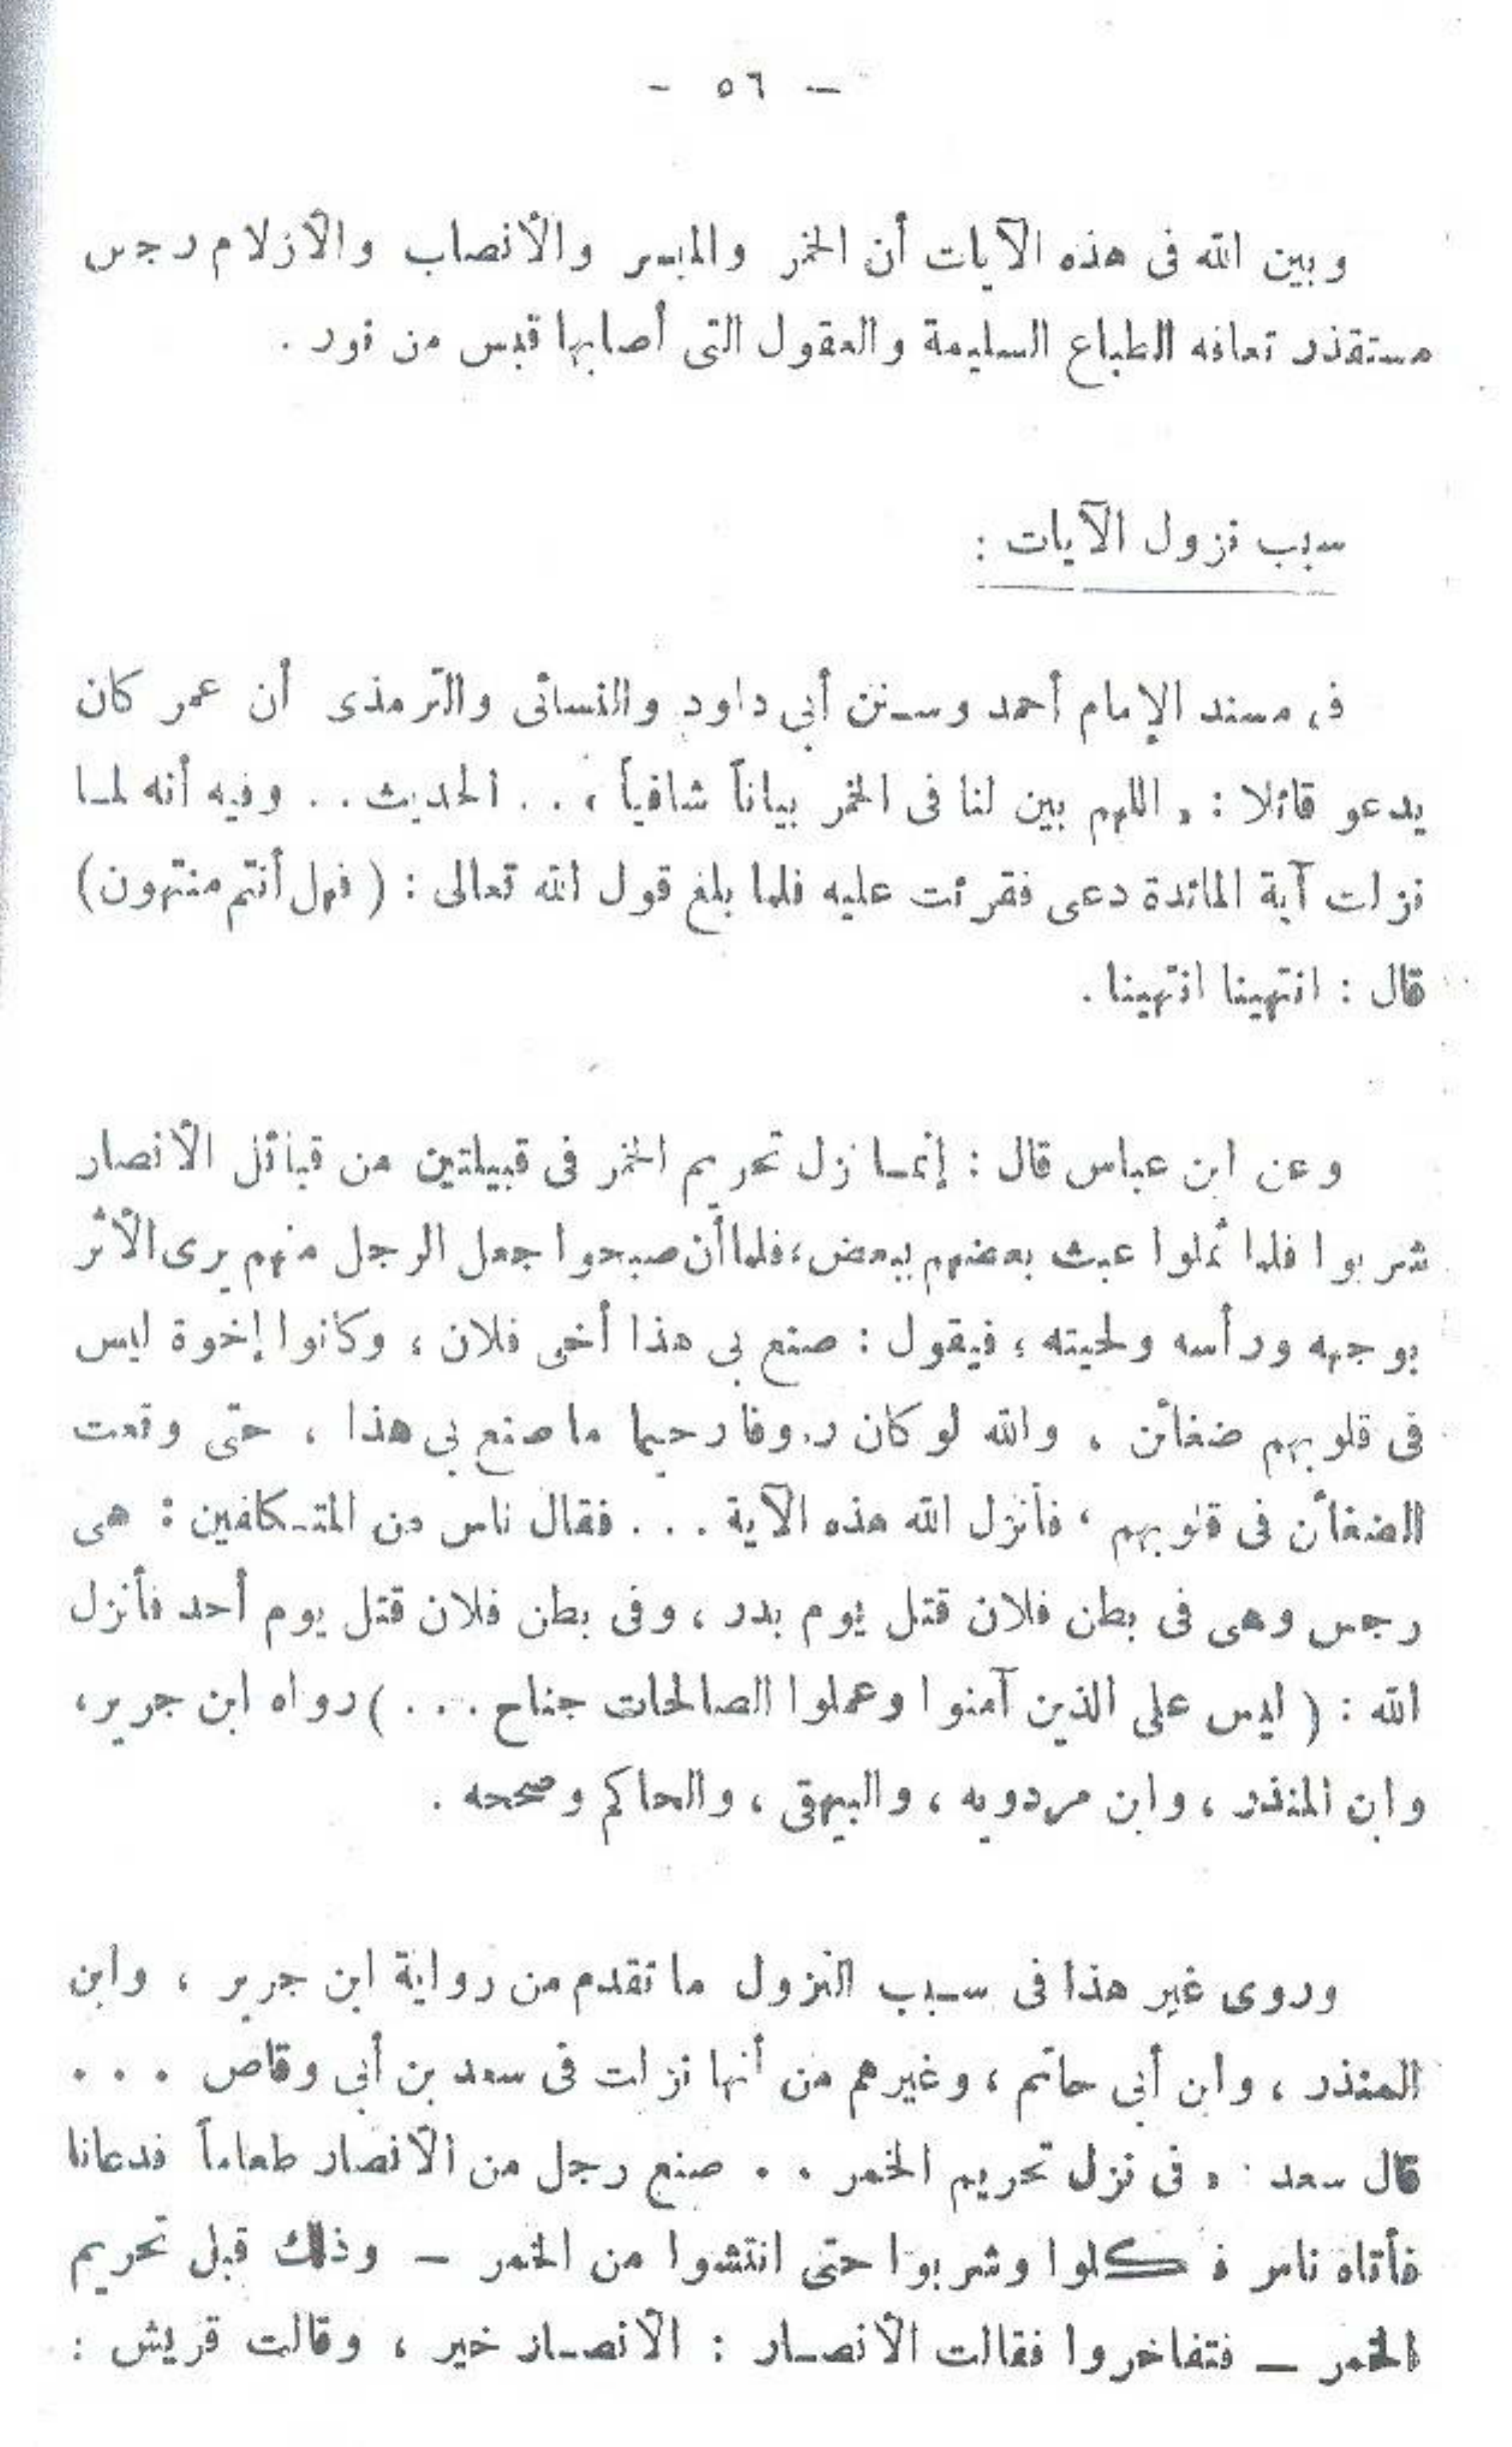 — ٥٦ —
وبين الله فى هذه الآيات أن الخمر والميسر والأنصاب والأزلام رجس
مستقذر تعافه الطباع السليمة والعقول التى أصابها قبس من نور .
سبب نزول الآيات :
فى مسند الإمام أحمد وسنن أبى داود والنسائى والترمذى أن عمر كان
يدعو قائلا : « اللهم بين لنا فى الخمر بياناً شافياً » . . الحديث . . وفيه أنه لما
نزلت آية المائدة دعى فقرئت عليه فلما بلغ قول الله تعالى : ( فهل أنتم منتهون )
قال : انتهينا انتهينا .
وعن ابن عباس قال : إنما نزل تحريم الخمر فى قبيلتين من قبائل الأنصار
شربوا فلما ثملوا عبث بعضهم ببعض ، فلما أن صبحوا جعل الرجل منهم يرى الأثر
بوجهه ورأسه ولحيته ، فيقول : صنع بى هذا أخى فلان ، وكانوا إخوة ليس
فى قلوبهم ضغائن ، والله لو كان ر.وفا رحيما ما صنع بى هذا ، حتى وقعت
الضغائن فى قلوبهم ، فأنزل الله هذه الآية . . . فقال ناس من المتكلفين : هى
رجس وهى فى بطن فلان قتل يوم بدر ، وفى بطن فلان قتل يوم أحد فأنزل
الله : ( ليس على الذين آمنوا وعملوا الصالحات جناح . . . ) رواه ابن جرير ،
وابن المنذر ، وابن مردويه ، والبيهقى ، والحاكم وصححه .
وروى غير هذا فى سبب النزول ما تقدم من رواية ابن جرير ، وابن
المنذر ، وابن أبى حاتم ، وغيرهم من أنها نزلت فى سعد بن أبى وقاص . . .
قال سعد : « فى نزل تحريم الخمر . . صنع رجل من الأنصار طعاماً فدعانا
فأتاه ناس فأكلوا وشربوا حتى انتشوا من الخمر — وذلك قبل تحريم
الخمر — فتفاخروا فقالت الأنصار : الأنصار خير ، وقالت قريش :